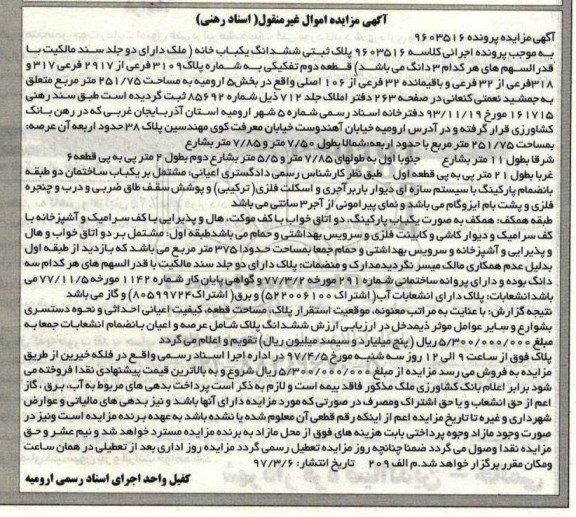 آگهی مزایده اموال غیرمنقول( اسناد رهنی)
آگهی مزایده پرونده ۹۶۰۳۵۱۶
به موجب پرونده اجرائی کلاسه ۹۶۰۳۵۱۶ پلاک ثبتی ششدانگ یکباب خانه ( ملک دارای دو جلد سند مالکیت با
قدرالسهم های هر کدام ۳ دانگ می باشد) قطعه دوم تفکیکی به شماره پلاک ۳۱۰۹ فرعی از ۲۹۱۷ فرعی ۳۱۷ و
۳۱۸ فرعی از ۳۲ فرعی و باقیمانده ۳۲ فرعی از ۱۰۶ اصلی واقع در بخش ۵ ارومیه به مساحت ۲۵۱/۷۵ متر مربع متعلق
به جمشید نعمتی کنعانی در صفحه ۲۶۳ دفتر املاک جلد ۷۱۲ ذیل شماره ۸۵۶۹۲ ثبت گردیده است طبق سند رهنی
۱۶۱۷۱۵ مورخ ۹۳/۱۱/۱۹ دفترخانه اسناد رسمی شماره ۵ شهر ارومیه استان آذربایجان غربی که در رهن بانک
کشاورزی قرار گرفته و در آدرس ارومیه خیابان آهندوست خیابان معرفت کوی مهندسین پلاک ۳۸ حدود اربعه آن عرصه:
بمساحت ۲۵۱/۷۵ متر مربع با حدود اربعه: شمالا بطول ۷/۵۰ متر و ۷/۸۵ متر بشارع
شرقا بطول ۱۱ متر بشارع جنوبا اول به طولهای ۷/۸۵ متر و ۵/۵ متر بشارع دوم بطول ۲ متر پی به پی قطعه ۶
غربا بطول ۲۱ متر پی به پی قطعه اول طبق نظر کارشناس رسمی دادگستری اعیانی: مشتمل بر یکباب ساختمان دو طبقه
بانضمام پارکینگ با سیستم سازه ای دیوار باربر آجری و اسکلت فلزی( ترکیبی) و پوشش سقف طاق ضربی و درب و پنجره
فلزی و پشت بام ایزوگام می باشد و نمای پیرامونی از آجر ۳ سانتی می باشد
طبقه همکف: همکف به صورت یکباب پارکینگ، دو اتاق خواب با کف موکت، هال و پذیرایی با کف سرامیک و آشپزخانه با
کف سرامیک و دیوار کاشی و کابینت فلزی و سرویس بهداشتی و حمام می باشد طبقه اول: مشتمل بر دو اتاق خواب و هال
و پذیرایی و آشپزخانه و سرویس بهداشتی و حمام جمعا بمساحت حدودا ۳۷۵ متر مربع می باشد که بازدید از طبقه اول
بدلیل عدم همکاری مالک میسر نگردید مدارک و منضمات: پلاک دارای دو جلد سند مالکیت با قدرالسهم های هر کدام سه
دانگ بوده و دارای پروانه ساختمانی شماره ۲۹۱ مورخه ۷۷/۳/۲ و گواهی پایان کار شماره ۱۱۴۲ مورخه ۷۷/۱۱/۵ می
باشد انشعابات: پلاک دارای انشعابات آب( اشتراک ۵۲۲۰۰۶۱۰۰) و برق( اشتراک ۸۰۵۹۹۷۲۴) و گاز می باشد
نتیجه گزارش: با عنایت به مراتب معنونه، موقعیت استقرار پلاک، مساحت قطعه، کیفیت اعیانی احداثی و نحوه دستسری
بشوارع و سایر عوامل موثر ذیمدخل در ارزیابی ارزش ششدانگ پلاک شامل عرصه و اعیان بانضمام انشعابات جمعا به
مبلغ ۵/۳۰۰/۰۰۰/۰۰۰ ریال ( پنج میلیارد و سیصد میلیون ریال) تقویم و اعلام می گردد
پلاک فوق از ساعت ۹ الی ۱۲ روز سه شنبه مورخ ۹۷/۴/۵ در اداره اجرا اسناد رسمی واقع در فلکه خیرین از طریق
مزایده به فروش می رسد مزایده از مبلغ ۵/۳۰۰/۰۰۰/۰۰۰ ریال شروع و به بالاترین قیمت پیشنهادی نقدا فروخته می
شود برابر اعلام بانک کشاورزی ملک مذکور فاقد بیمه است و لازم به ذکر است پرداخت بدهی های مربوط به آب، برق، گاز
اعم از حق انشعاب و یا حق اشتراک ومصرف در صورتی که مورد مزایده دارای آنها باشد و نیز بدهی های مالیاتی و عوارض
شهرداری و غیره تا تاریخ مزایده اعم از اینکه رقم قطعی آن معلوم شده یا نشده باشد به عهده برنده مزایده است ونیز در
صورت وجود مازاد وجوه پرداختی بابت هزینه های فوق از محل مازاد به برنده مزایده مسترد خواهد شد و نیم عشر و حق
مزایده نقدا وصول می گردد ضمنا چنانچه روز مزایده تعطیل رسمی گردد مزایده روز اداری بعد از تعطیلی در همان ساعت
ومکان مقرر برگزار خواهد شد.م الف ۲۰۹ تاریخ انتشار: ۹۷/۳/۶
کفیل واحد اجرای اسناد رسمی ارومیه